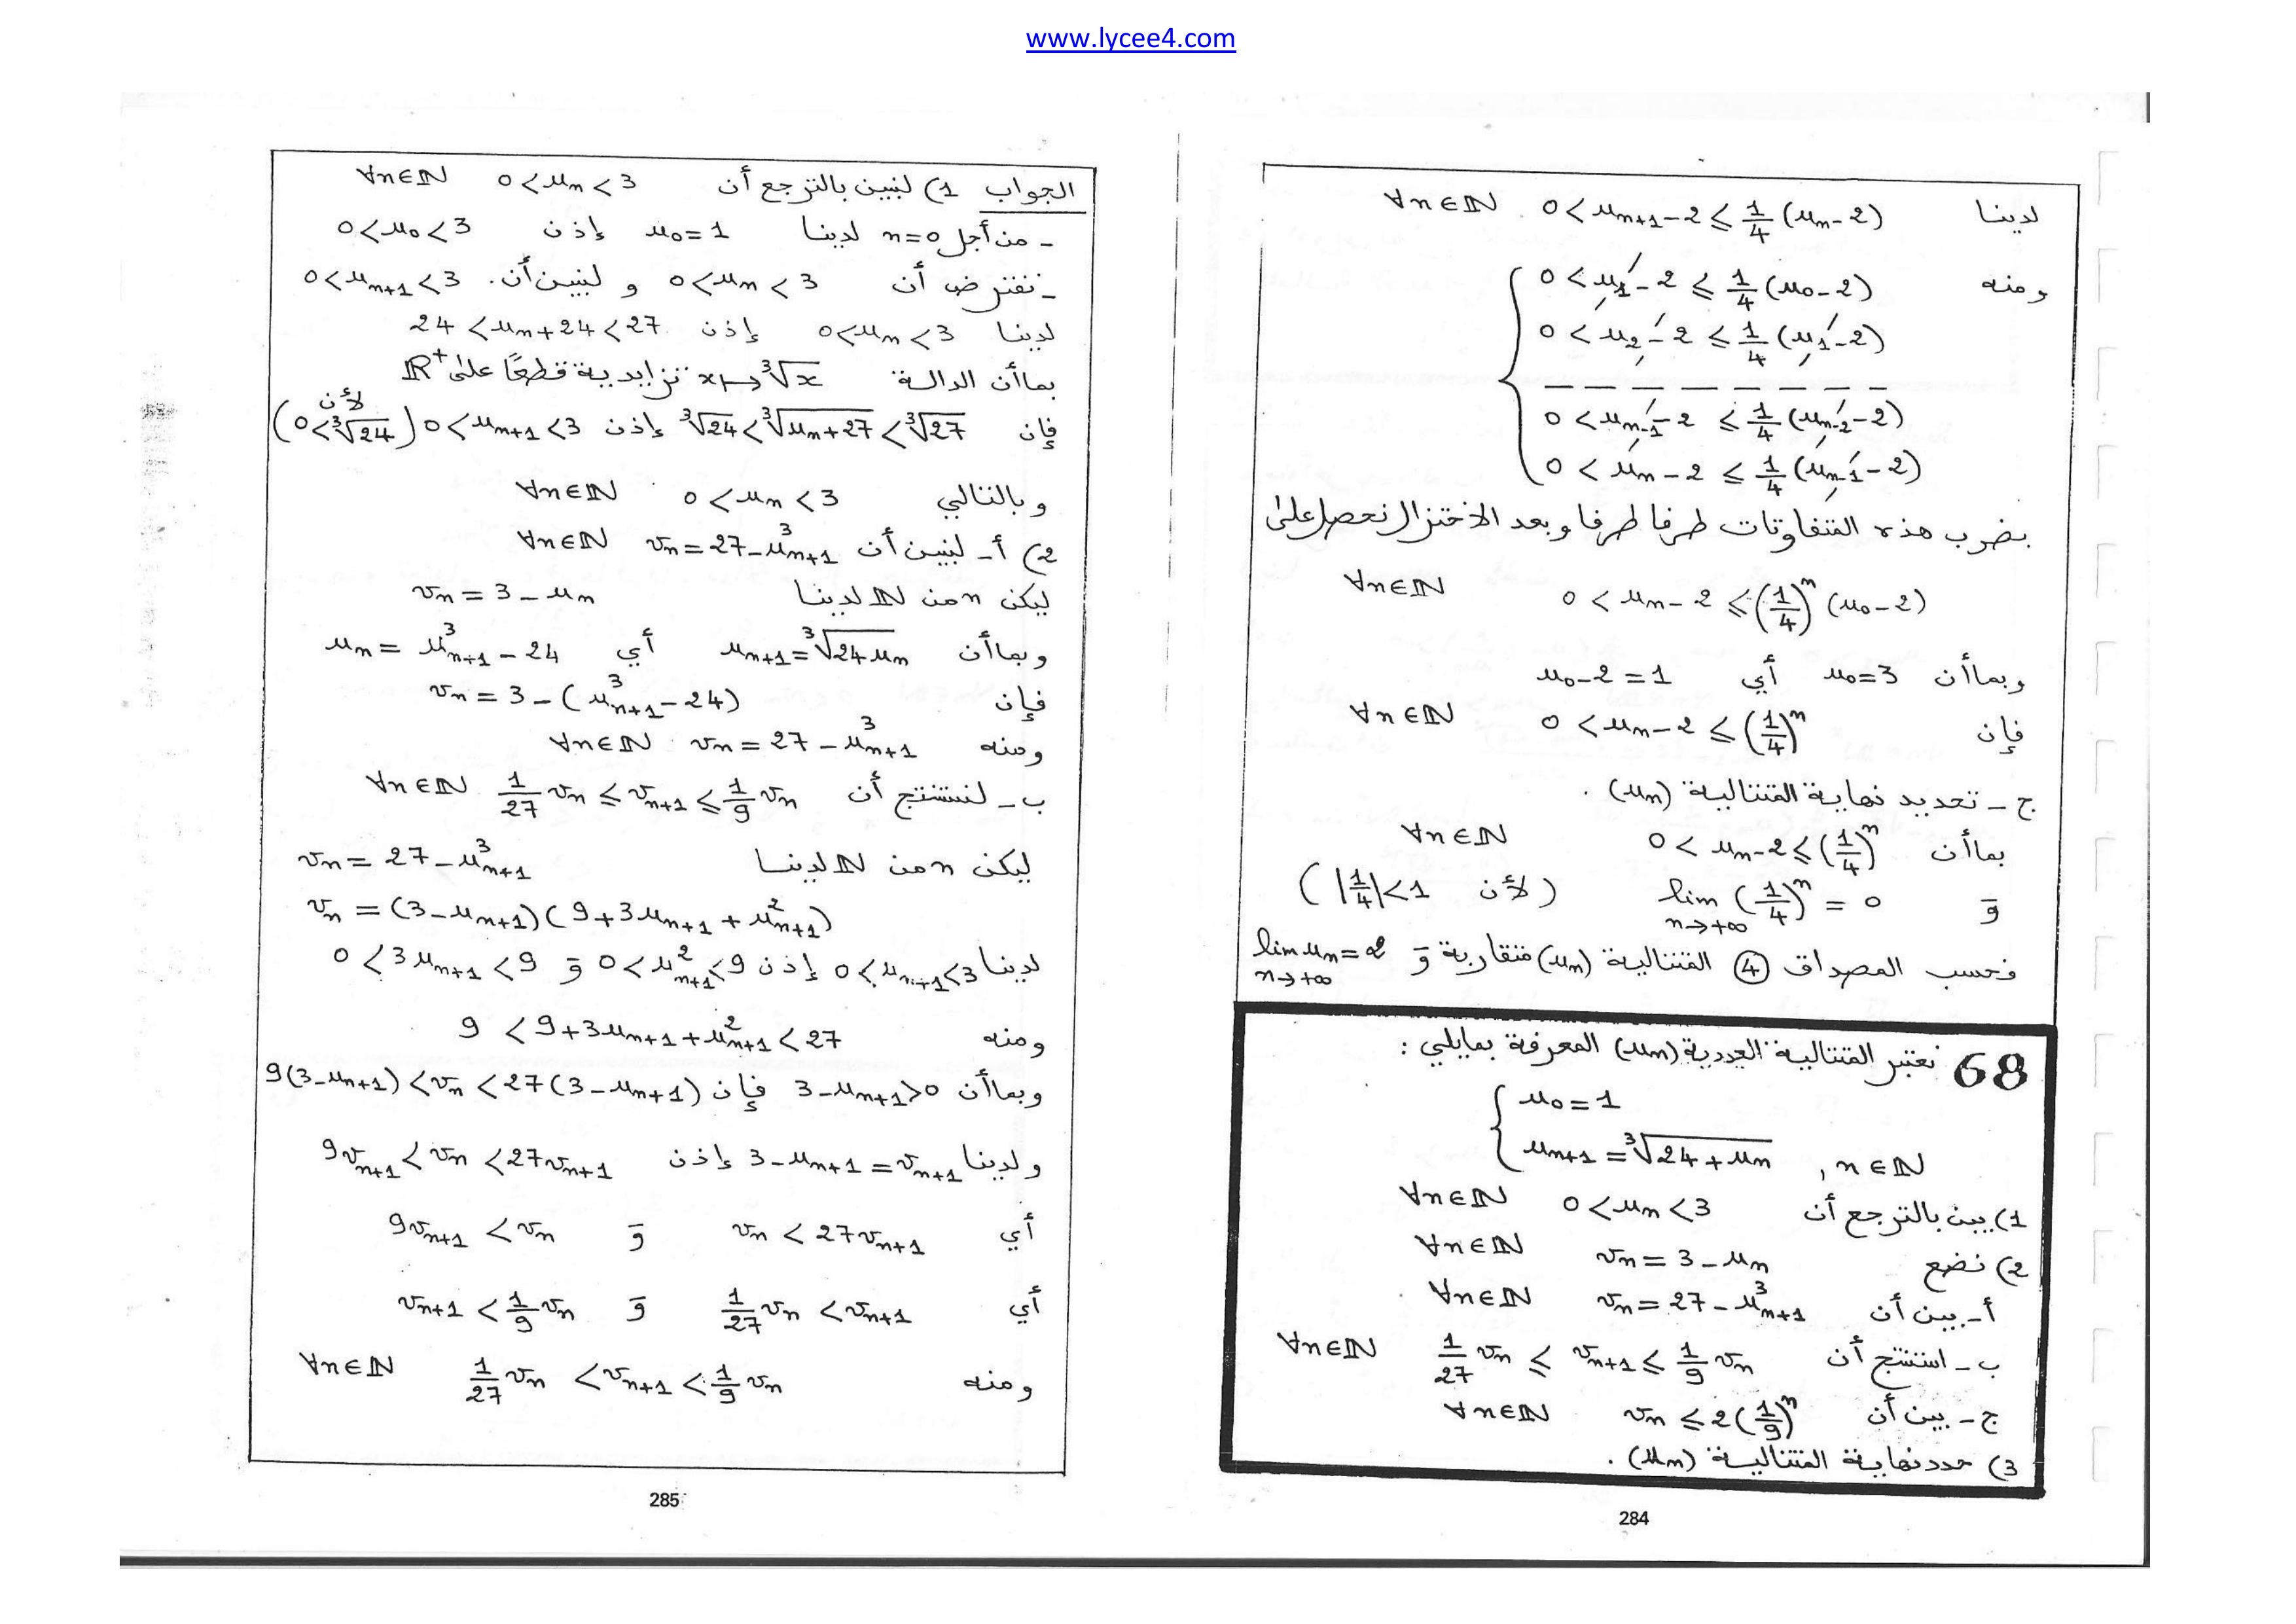 www.lycee4.com
لدينا 0 < u_{n+1} - 2 ≤ 1/4 (u_n - 2) ∀n∈ℕ
ومنه
0 < u_1 - 2 ≤ 1/4 (u_0 - 2)
0 < u_2 - 2 ≤ 1/4 (u_1 - 2)
_ _ _ _ _ _ _ _ _
0 < u_{n-1} - 2 ≤ 1/4 (u_{n-2} - 2)
0 < u_n - 2 ≤ 1/4 (u_{n-1} - 2)
بضرب هذه المتفاوتات طرفا طرفا وبعد الاختزال نحصل على
0 < u_n - 2 ≤ (1/4)^n (u_0 - 2) ∀n∈ℕ
وبما أن u_0 = 3 أي u_0 - 2 = 1
فإن 0 < u_n - 2 ≤ (1/4)^n ∀n∈ℕ
ج - تحديد نهاية المتتالية (u_n).
بما أن 0 < u_n - 2 ≤ (1/4)^n ∀n∈ℕ
و lim_{n→+∞} (1/4)^n = 0 (لأن |1/4| < 1)
فحسب المصداق ④ المتتالية (u_n) متقاربة و lim_{n→+∞} u_n = 2
68 نعتبر المتتالية العددية (u_n) المعرفة بمايلي :
u_0 = 1
u_{n+1} = ∛(24 + u_n) , n∈ℕ
1) بين بالترجع أن 0 < u_n < 3 ∀n∈ℕ
2) نضع v_n = 3 - u_n ∀n∈ℕ
أ - بين أن v_n = 27 - u³_{n+1} ∀n∈ℕ
ب - استنتج أن 1/27 v_n ≤ v_{n+1} ≤ 1/9 v_n ∀n∈ℕ
ج - بين أن v_n ≤ 2(1/9)^n ∀n∈ℕ
3) حدد نهاية المتتالية (u_n) .
284
الجواب 1) لنبين بالترجع أن 0 < u_n < 3 ∀n∈ℕ
- من أجل n=0 لدينا u_0 = 1 إذن 0 < u_0 < 3
- نفترض أن 0 < u_n < 3 و لنبين أن. 0 < u_{n+1} < 3
لدينا 0 < u_n < 3 إذن 24 < u_n + 24 < 27
بما أن الدالة x ↦ ∛x تزايدية قطعًا على ℝ⁺
فإن ∛24 < ∛(u_n + 27) < ∛27 إذن 0 < u_{n+1} < 3 (لأن 0 < ∛24)
وبالتالي 0 < u_n < 3 ∀n∈ℕ
2) أ - لنبين أن v_n = 27 - u³_{n+1} ∀n∈ℕ
ليكن n من ℕ لدينا v_n = 3 - u_n
وبما أن u_{n+1} = ∛(24 u_n) أي u_n = u³_{n+1} - 24
فإن v_n = 3 - (u³_{n+1} - 24)
ومنه v_n = 27 - u³_{n+1} ∀n∈ℕ
ب - لنستنتج أن 1/27 v_n ≤ v_{n+1} ≤ 1/9 v_n ∀n∈ℕ
ليكن n من ℕ لدينا v_n = 27 - u³_{n+1}
v_n = (3 - u_{n+1})(9 + 3u_{n+1} + u²_{n+1})
لدينا 0 < u_{n+1} < 3 إذن 0 < u²_{n+1} < 9 و 0 < 3u_{n+1} < 9
ومنه 9 < 9 + 3u_{n+1} + u²_{n+1} < 27
وبما أن 3 - u_{n+1} > 0 فإن 9(3 - u_{n+1}) < v_n < 27(3 - u_{n+1})
ولدينا 3 - u_{n+1} = v_{n+1} إذن 9v_{n+1} < v_n < 27v_{n+1}
أي v_n < 27v_{n+1} و 9v_{n+1} < v_n
أي 1/27 v_n < v_{n+1} و v_{n+1} < 1/9 v_n
ومنه 1/27 v_n < v_{n+1} < 1/9 v_n ∀n∈ℕ
285